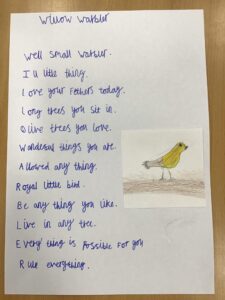 Willow warbler
Well small warbler.
I ll little thing.
Love your fethers today.
Long trees you sit in.
Olive trees you love.
Wonderful things you are.
Allowed any thing.
Royal little bird.
Be any thing you like.
Live in any tree.
Every thing is Possible for you
Rule everything.